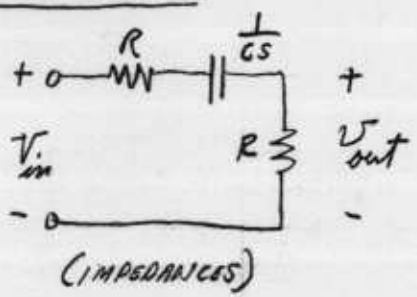 R
1
CS
+
+
V in
R
V out
-
-
(IMPEDANCES)